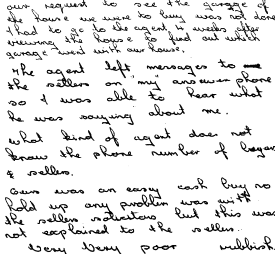 our request to see the garage of
the house we were to buy was not done
I had to go to the agent 2 weeks after
viewing the house to find out which
garage went with our house.
The agent left messages to
the sellers on "my" answer phone
so I was able to hear what
he was saying about me.
What kind of agent does not
know the phone number of buyers
& sellers.
Ours was an easy cash buy no
hold up any problem was with
the sellers solicitors but this was
not explained to the sellers.
Very Very poor rubbish.